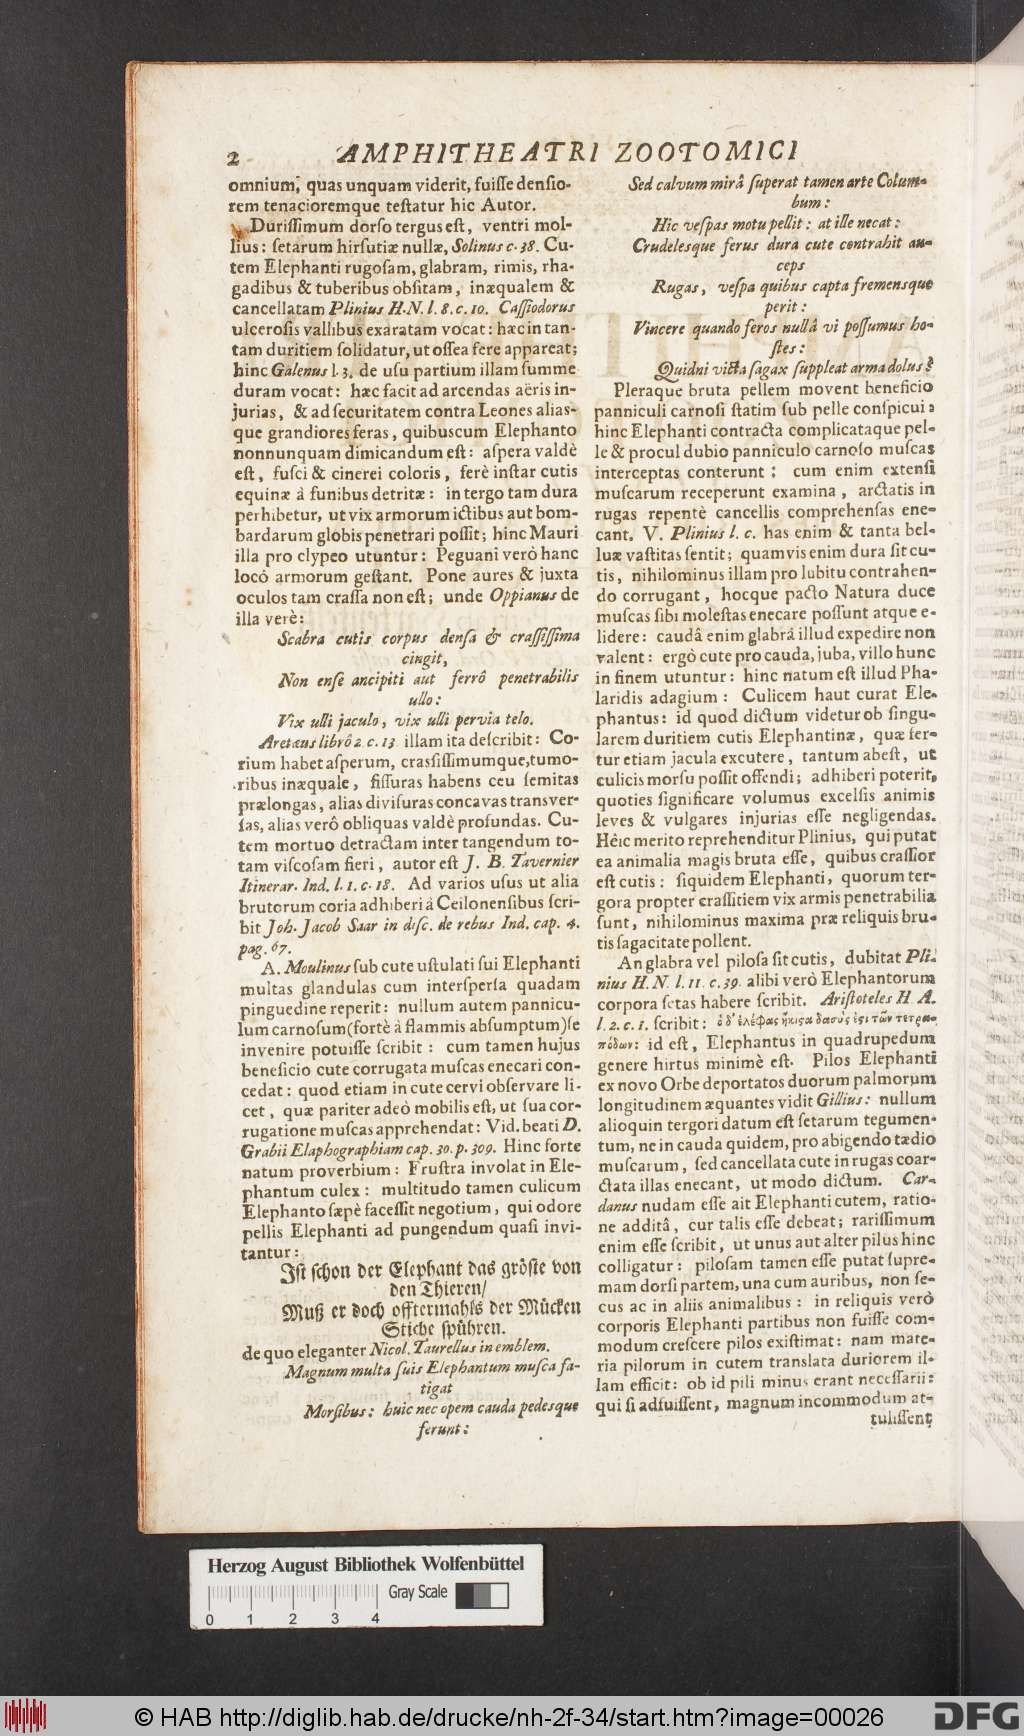 2 AMPHITHEATRI ZOOTOMICI
omnium, quas unquam viderit, fuiſſe denſio-
rem tenacioremque teſtatur hic Autor.
Duriſſimum dorſo tergus eſt, ventri mol-
lius: ſetarum hirſutiæ nullæ, Solinus c. 38. Cu-
tem Elephanti rugoſam, glabram, rimis, rha-
gadibus & tuberibus obſitam, inæqualem &
cancellatam Plinius H.N. l. 8. c. 10. Caſſiodorus
ulceroſis vallibus exaratam vocat: hæc in tan-
tam duritiem ſolidatur, ut oſſea fere appareat;
hinc Galenus l. 3. de uſu partium illam ſumme
duram vocat: hæc facit ad arcendas aëris in-
jurias, & ad ſecuritatem contra Leones alias-
que grandiores feras, quibuscum Elephanto
nonnunquam dimicandum eſt: aſpera valdè
eſt, fuſci & cinerei coloris, ferè inſtar cutis
equinæ à funibus detritæ: in tergo tam dura
perhibetur, ut vix armorum ictibus aut bom-
bardarum globis penetrari poſſit; hinc Mauri
illa pro clypeo utuntur: Peguani verò hanc
locô armorum geſtant. Pone aures & juxta
oculos tam craſſa non eſt; unde Oppianus de
illa verè:
Scabra cutis corpus denſa & craſſiſſima
cingit,
Non enſe ancipiti aut ferrô penetrabilis
ullo:
Vix ulli jaculo, vix ulli pervia telo.
Aretæus librô 2. c. 13 illam ita deſcribit: Co-
rium habet aſperum, crasſiſſimumque, tumo-
ribus inæquale, fiſſuras habens ceu ſemitas
prælongas, alias diviſuras concavas transver-
ſas, alias verô obliquas valdè profundas. Cu-
tem mortuo detractam inter tangendum to-
tam viſcoſam fieri, autor eſt J. B. Tavernier
Itinerar. Ind. l. 1. c. 18. Ad varios uſus ut alia
brutorum coria adhiberi à Ceilonenſibus ſcri-
bit Joh. Jacob Saar in diſc. de rebus Ind. cap. 4.
pag. 67.
A. Moulinus ſub cute uſtulati ſui Elephanti
multas glandulas cum interſperſa quadam
pinguedine reperit: nullum autem pannicu-
lum carnoſum (fortè à flammis abſumptum) ſe
invenire potuiſſe ſcribit: cum tamen hujus
beneficio cute corrugata muſcas enecari con-
cedat: quod etiam in cute cervi obſervare li-
cet, quæ pariter adeò mobilis eſt, ut ſua cor-
rugatione muſcas apprehendat: Vid. beati D.
Grabii Elaphographiam cap. 30. p. 309. Hinc forte
natum proverbium: Fruſtra involat in Ele-
phantum culex: multitudo tamen culicum
Elephanto ſæpè faceſſit negotium, qui odore
pellis Elephanti ad pungendum quaſi invi-
tantur:
Iſt ſchon der Elephant das gröſte von
den Thieren/
Muß er doch offtermahls der Mücken
Stiche ſpühren.
de quo eleganter Nicol. Taurellus in emblem.
Magnum multa ſuis Elephantum muſca fa-
tigat
Morſibus: huic nec opem cauda pedesque
ferunt:
Sed calvum mirâ ſuperat tamen arte Colum-
bum:
Hic veſpas motu pellit: at ille necat:
Crudelesque ferus dura cute contrahit au-
ceps
Rugas, veſpa quibus capta fremensque
perit:
Vincere quando feros nullâ vi poſſumus ho-
ſtes:
Quidni victa ſagax ſuppleat arma dolus?
Pleraque bruta pellem movent beneficio
panniculi carnoſi ſtatim ſub pelle conſpicui:
hinc Elephanti contracta complicataque pel-
le & procul dubio panniculo carnoſo muſcas
interceptas conterunt: cum enim extenſi
muſcarum receperunt examina, arctatis in
rugas repentè cancellis comprehenſas ene-
cant. V. Plinius l. c. has enim & tanta bel-
luæ vaſtitas ſentit; quamvis enim dura ſit cu-
tis, nihilominus illam pro lubitu contrahen-
do corrugant, hocque pacto Natura duce
muſcas ſibi moleſtas enecare poſſunt atque e-
lidere: caudâ enim glabrâ illud expedire non
valent: ergò cute pro cauda, juba, villo hunc
in finem utuntur: hinc natum eſt illud Pha-
laridis adagium: Culicem haut curat Ele-
phantus: id quod dictum videtur ob ſingu-
larem duritiem cutis Elephantinæ, quæ fer-
tur etiam jacula excutere, tantum abeſt, ut
culicis morſu poſſit offendi; adhiberi poterit,
quoties ſignificare volumus excelſis animis
leves & vulgares injurias eſſe negligendas.
Hêic merito reprehenditur Plinius, qui putat
ea animalia magis bruta eſſe, quibus craſſior
eſt cutis: ſiquidem Elephanti, quorum ter-
gora propter craſſitiem vix armis penetrabilia
ſunt, nihilominus maxima præ reliquis bru-
tis ſagacitate pollent.
An glabra vel piloſa ſit cutis, dubitat Pli-
nius H. N. l. 11. c. 39. alibi verò Elephantorum
corpora ſetas habere ſcribit. Ariſtoteles H. A.
l. 2. c. 1. ſcribit: ὁ δ' ἐλέφας ἥκιςα δασύς ἐςι τῶν τετρα-
πόδων: id eſt, Elephantus in quadrupedum
genere hirtus minimè eſt. Pilos Elephanti
ex novo Orbe deportatos duorum palmorum
longitudinem æquantes vidit Gillius: nullum
alioquin tergori datum eſt ſetarum tegumen-
tum, ne in cauda quidem, pro abigendo tædio
muſcarum, ſed cancellata cute in rugas coar-
ctata illas enecant, ut modo dictum. Car-
danus nudam eſſe ait Elephanti cutem, ratio-
ne additâ, cur talis eſſe debeat; rariſſimum
enim eſſe ſcribit, ut unus aut alter pilus hinc
colligatur: piloſam tamen eſſe putat ſupre-
mam dorſi partem, una cum auribus, non ſe-
cus ac in aliis animalibus: in reliquis verò
corporis Elephanti partibus non fuiſſe com-
modum creſcere pilos exiſtimat: nam mate-
ria pilorum in cutem translata duriorem il-
lam efficit: ob id pili minus erant neceſſarii:
qui ſi adfuiſſent, magnum incommodum at-
tuliſſent
Herzog August Bibliothek Wolfenbüttel
Gray Scale
0 1 2 3 4
© HAB http://diglib.hab.de/drucke/nh-2f-34/start.htm?image=00026
DFG